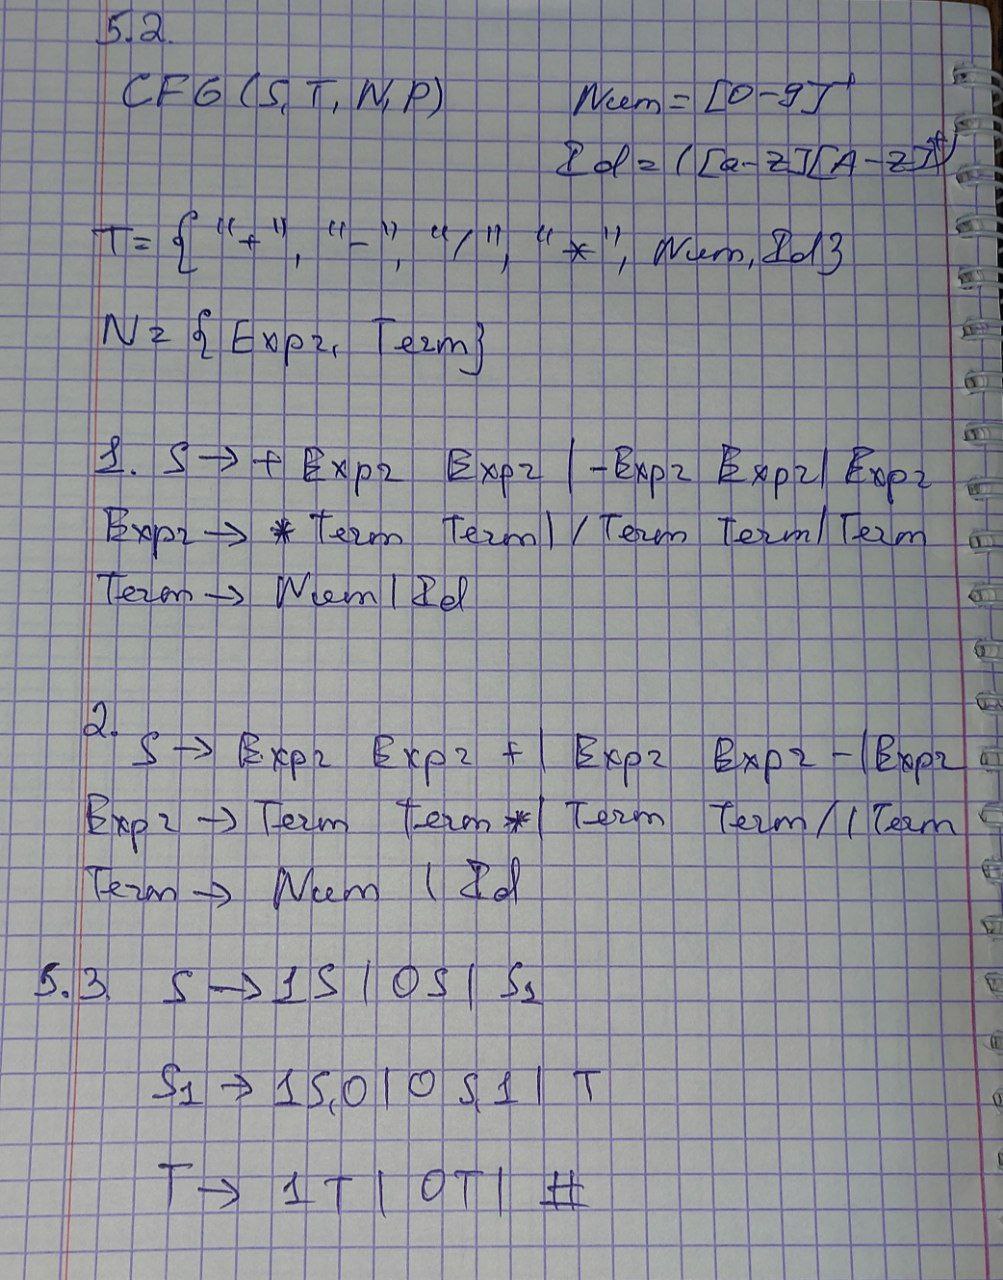 5.2.
CFG (S, T, N, P) Num = [0-9]⁺
Id = ([a-z][A-Z])⁺
T = { "+", "-", "/", "*", Num, Id }
N = { Expr, Term }
1. S → + Expr Expr | - Expr Expr | Expr
Expr → * Term Term | / Term Term | Term
Term → Num | Id
2. S → Expr Expr + | Expr Expr - | Expr
Expr → Term Term * | Term Term / | Term
Term → Num | Id
5.3. S → 1S | 0S | S₁
S₁ → 1S₁0 | 0S₁1 | T
T → 1T | 0T | #